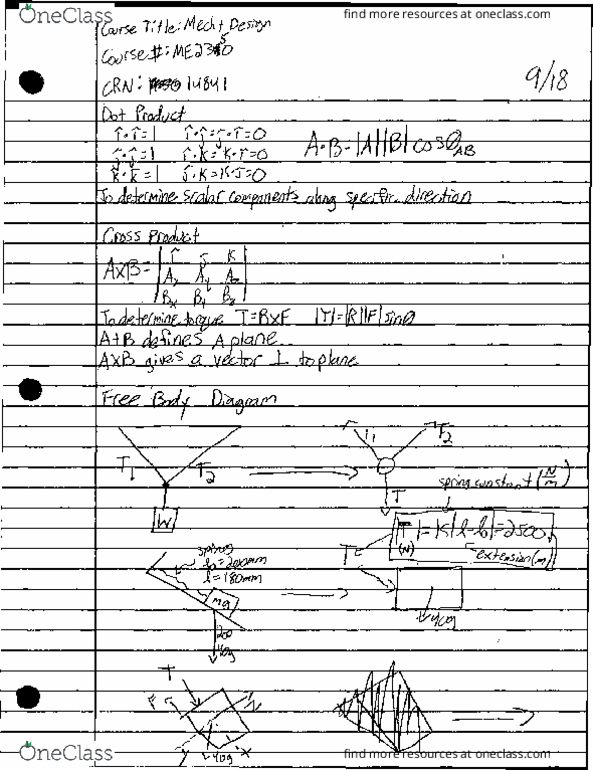 OneClass
find more resources at oneclass.com
Course Title: Mech+ Design
Course #: ME235
CRN: 14841
9/18
Dot Product
î·î=1 î·ĵ=ĵ·î=0
ĵ·ĵ=1 î·k=k·î=0
k·k=1 ĵ·k=k·ĵ=0
A·B=|A||B|cosθAB
To determine scalar components along specific direction
Cross Product
î ĵ k
AxB= Ax Ay Az
Bx By Bz
To determine torque T=RxF |T|=|R||F|sinθ
A+B defines A plane
AxB gives a vector ⊥ to plane
Free Body Diagram
T1 T2
W
T1 T2
T
spring constant (N/m)
|T|=K|l-l0|=2500
(N)
extension(m)
spring
l0=200mm
l=180mm
mg
200
40g
T
40g
T
F N
40g
y x
OneClass
find more resources at oneclass.com